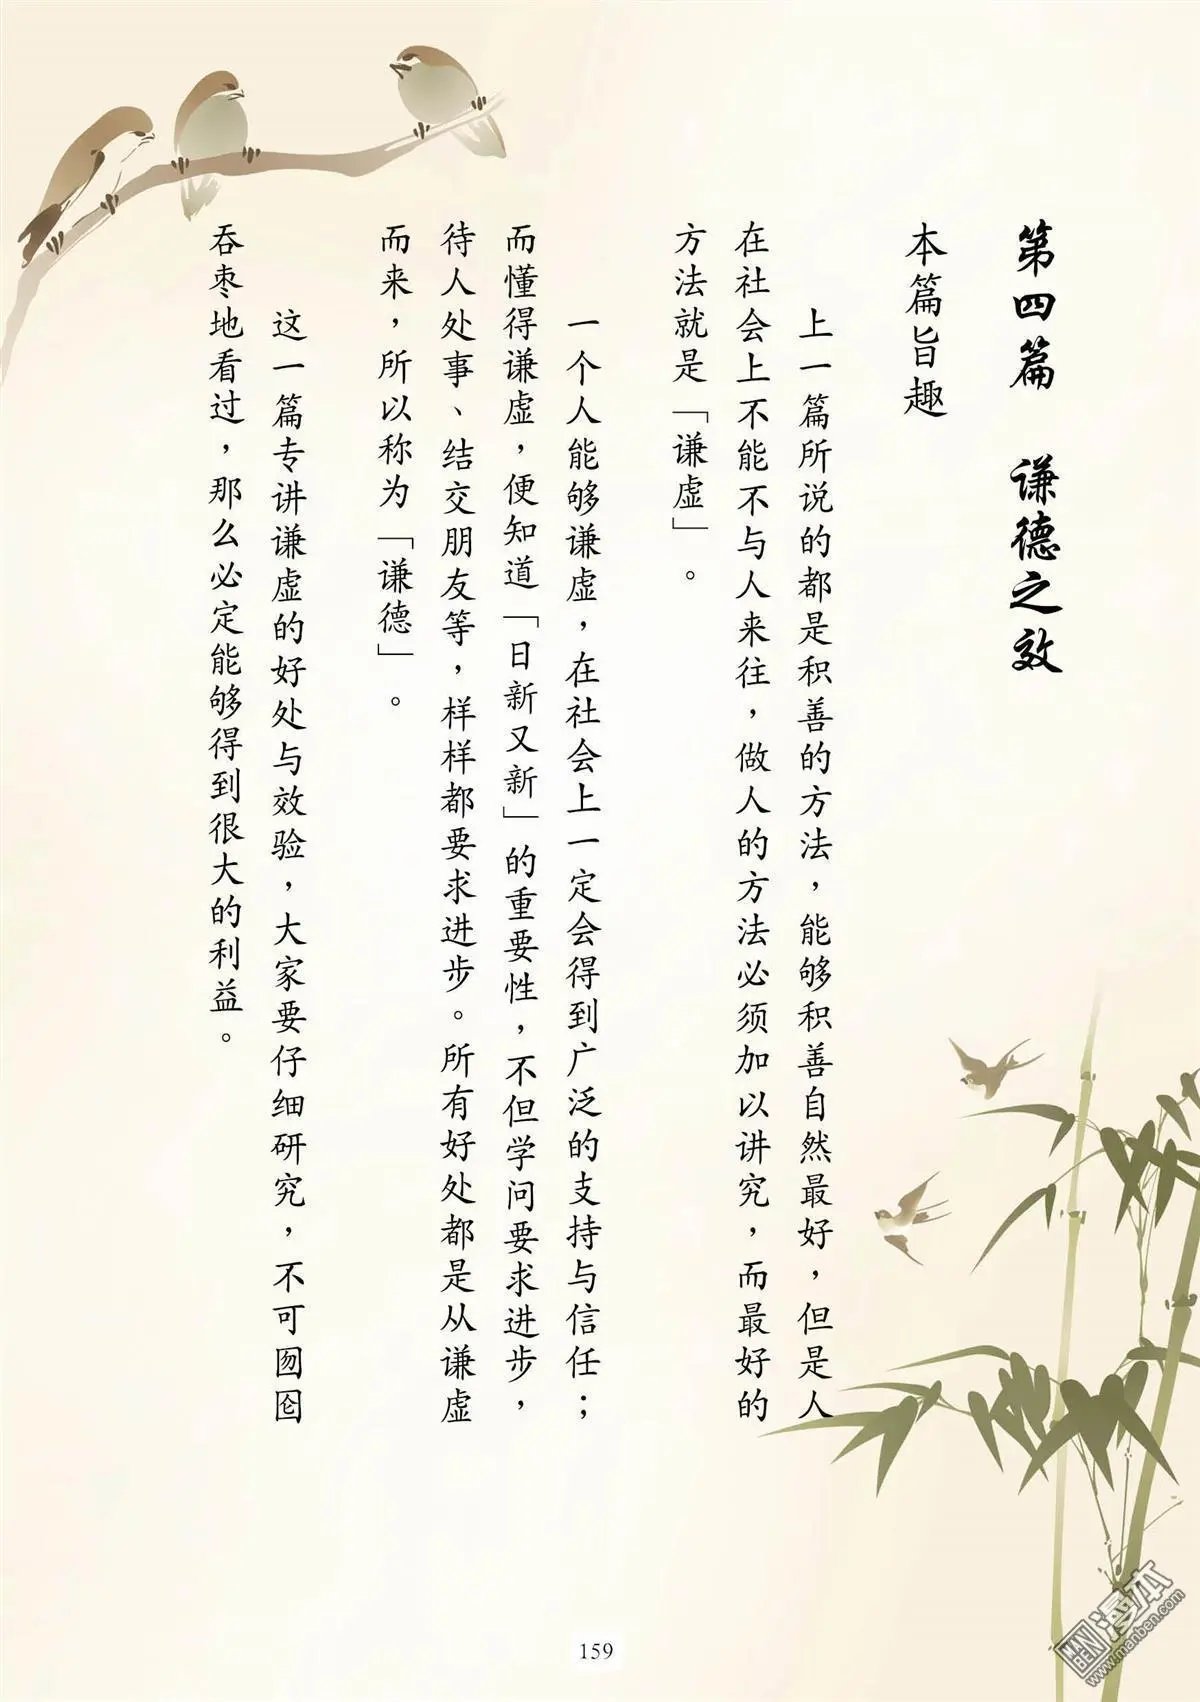 第四篇　谦德之效
本篇旨趣
上一篇所说的都是积善的方法，能够积善自然最好，但是人
在社会上不能不与人来往，做人的方法必须加以讲究，而最好的
方法就是「谦虚」。
一个人能够谦虚，在社会上一定会得到广泛的支持与信任；
而懂得谦虚，便知道「日新又新」的重要性，不但学问要求进步，
待人处事、结交朋友等，样样都要求进步。所有好处都是从谦虚
而来，所以称为「谦德」。
这一篇专讲谦虚的好处与效验，大家要仔细研究，不可囫囵
吞枣地看过，那么必定能够得到很大的利益。
159
MAN
BEN
漫本
www.manben.com